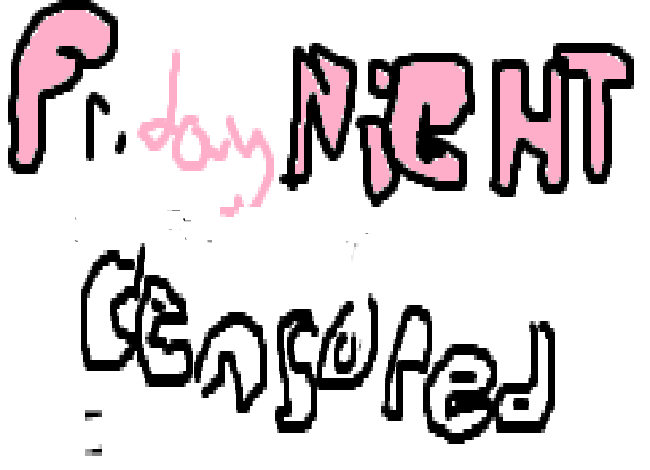 Friday NiGHT
Censured